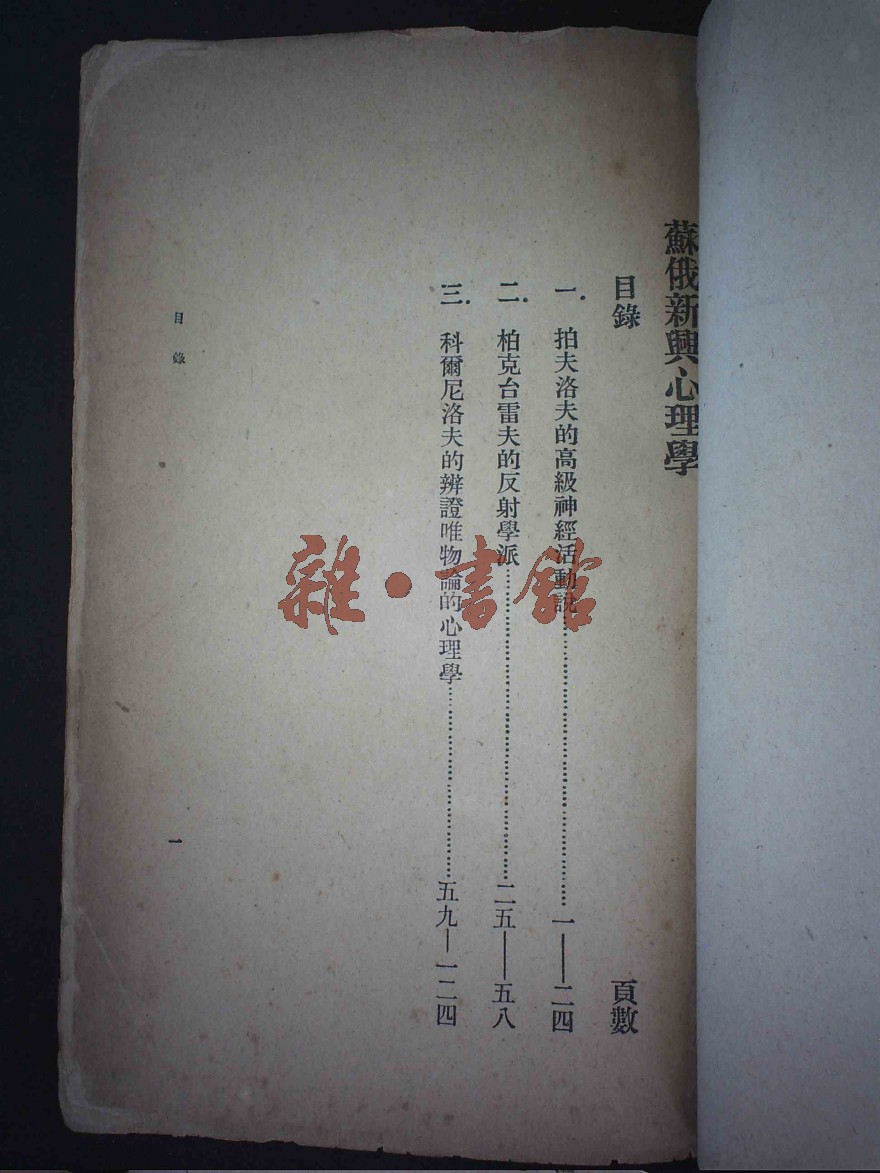 蘇俄新興心理學
目錄 頁數
一. 拍夫洛夫的高級神經活動說…………………………一——二四
二. 柏克台雷夫的反射學派…………………………二五——五八
三. 科爾尼洛夫的辨證唯物論的心理學…………………五九—一二四
目錄 一
雜·書館